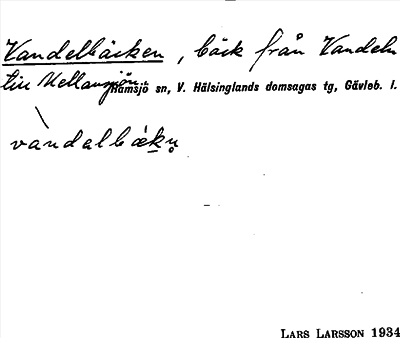 Vandelbäcken, bäck från Vandeln
till Mellansjön
Ramsjö sn, V. Hälsinglands domsagas tg, Gävleb. l.
vandalbækn̥
LARS LARSSON 1934